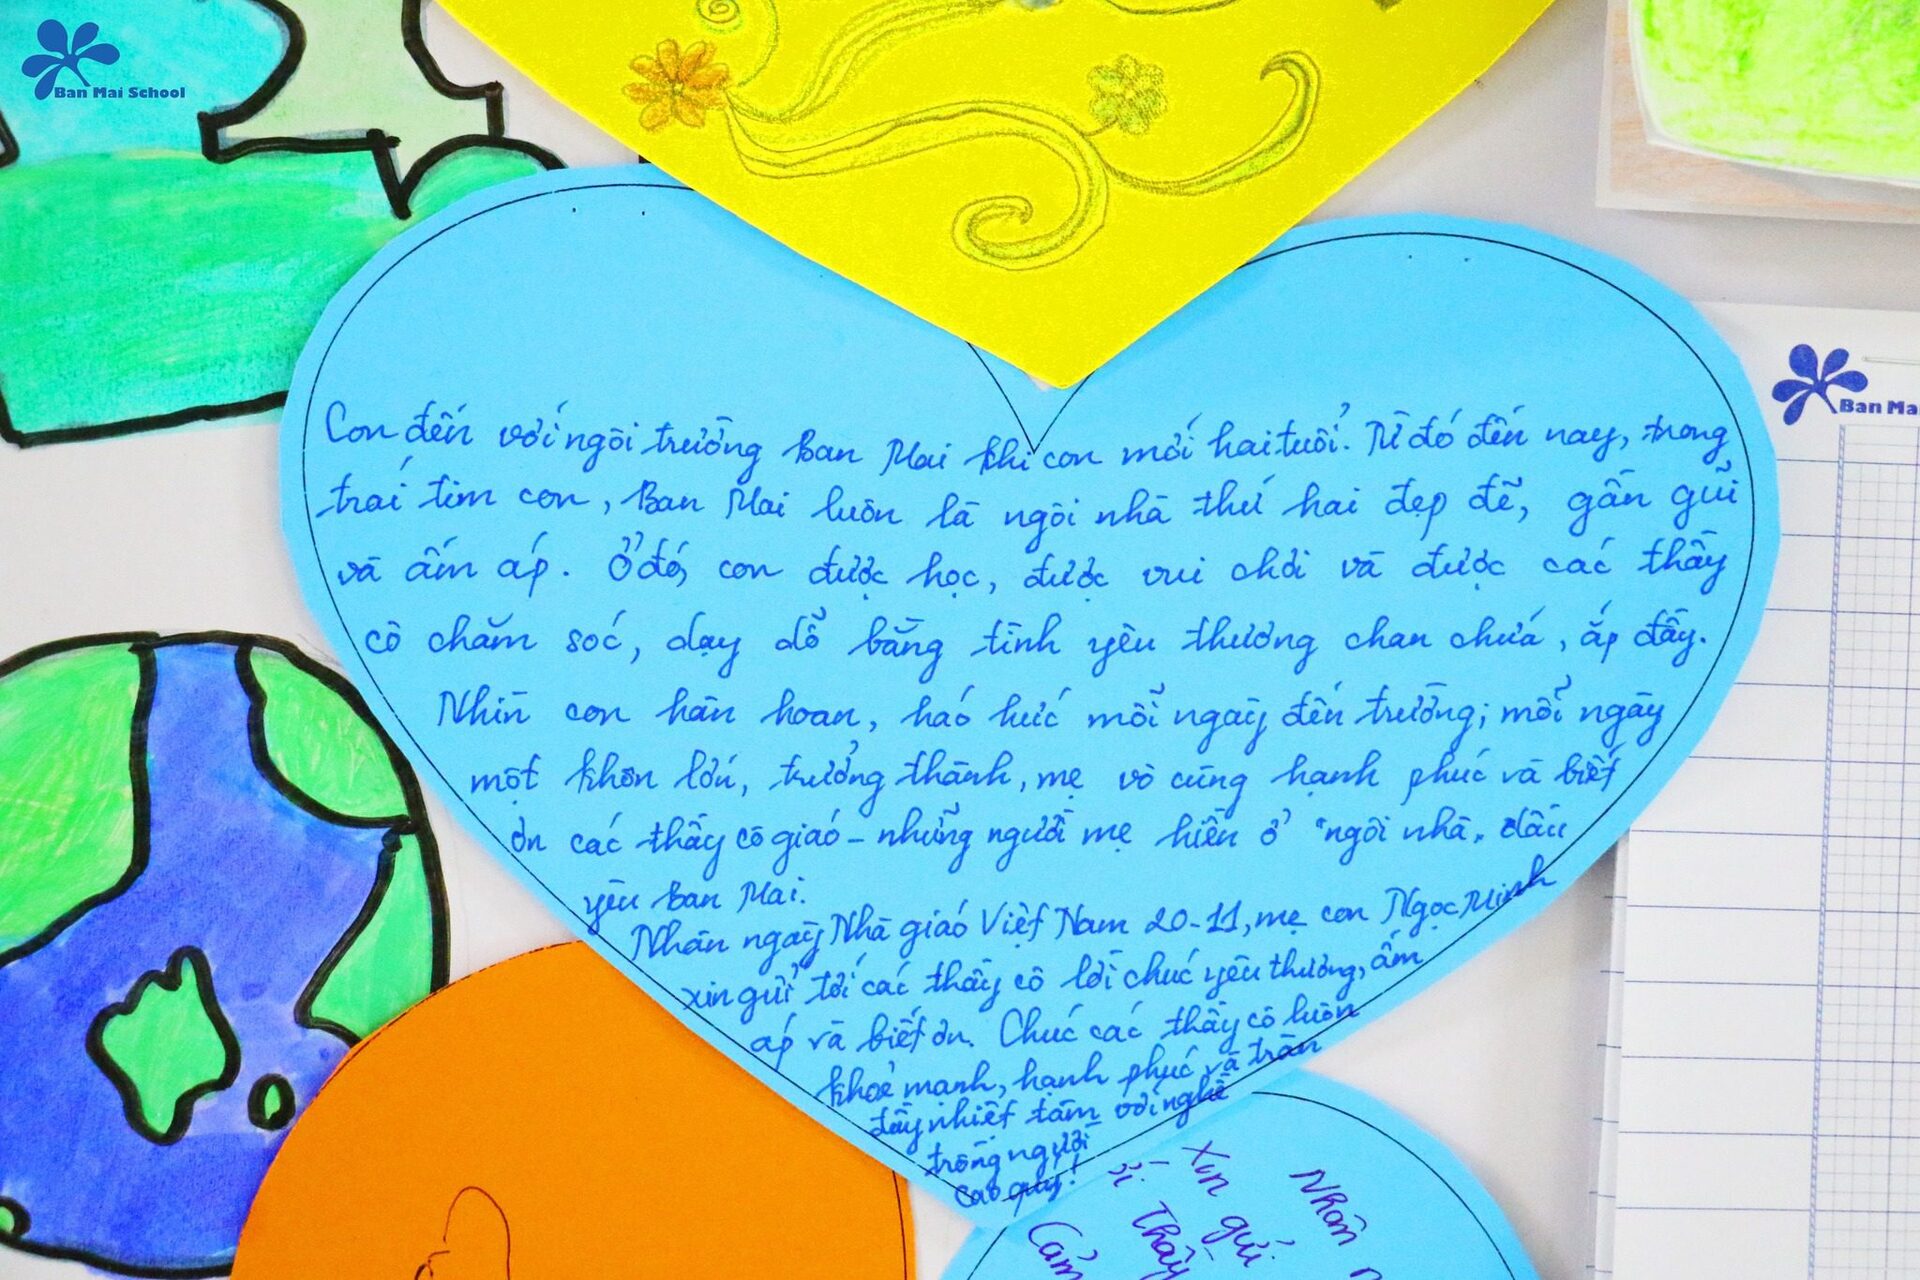 Ban Mai School
Ban Ma
Con đến với ngôi trường Ban Mai khi con mới hai tuổi. Từ đó đến nay, trong
trái tim con, Ban Mai luôn là ngôi nhà thứ hai đẹp đẽ, gần gũi
và ấm áp. Ở đó, con được học, được vui chơi và được các thầy
cô chăm sóc, dạy dỗ bằng tình yêu thương chan chứa, ắp đầy.
Nhìn con hân hoan, háo hức mỗi ngày đến trường; mỗi ngày
một khôn lớn, trưởng thành, mẹ vô cùng hạnh phúc và biết
ơn các thầy cô giáo - những người mẹ hiền ở "ngôi nhà" dấu
yêu Ban Mai.
Nhân ngày Nhà giáo Việt Nam 20-11, mẹ con Ngọc Minh
xin gửi tới các thầy cô lời chúc yêu thương, ấm
áp và biết ơn. Chúc các thầy cô luôn
khoẻ mạnh, hạnh phúc và tràn
đầy nhiệt tâm với nghề
trồng người
cao quý!
Nhân
Xin gửi
Thầy
Cảm